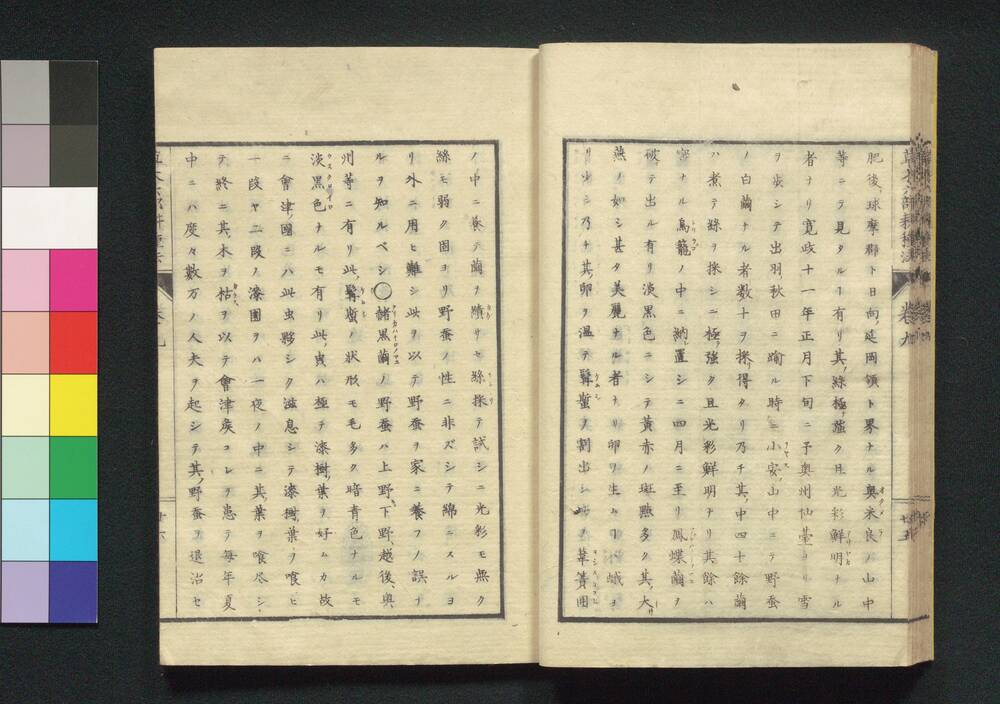 肥後ノ球摩郡ト日向ノ延岡領ト界ナル奥米良ノ山中
等ニテ見タルヿ有リ其ノ絲極テ強ク且光彩鮮明ナル
者ナリ寛政十一年正月下旬ニ予奥州仙臺ヨリ雪
ヲ歩シテ出羽ノ秋田ニ踰ル時ニ小安ノ山中ニテ野蚕
ノ白繭ナル者数十ヲ採得タリ乃チ其ノ中四十餘繭
ハ煮テ絲ヲ採シニ極テ強ク且光彩鮮明ナリ其餘ハ
密ナル鳥籠ノ中ニ納置シニ四月ニ至リ鳳蝶繭ヲ
破テ出ル有リ淡黒色ニシテ黄赤ノ斑點多ク其ノ大サ
燕ノ如シ甚タ美麗ナル者ナリ卵ヲ生ムヿハ蛾ヨ
リ少シ乃チ其ノ卵ヲ温テ髯蚕ノ割出シ此ヲ草簀囲
ノ中ニ養テ繭ヲ績リセ絲採テ試シニ光彩モ無ク
絲モ弱ク固ヨリ野蚕ノ性ニ非ズシテ綿ニスルヨ
リ外ニ用ヒ難シ此ヲ以テ野蚕ヲ家ニ養フノ誤ナ
ルヲ知ルベシ〇諸黒繭ノ野蚕ハ上野下野、越後、奥
州等ニ有リ此ノ状形モ毛多ク暗青色ナルモ
淡黒色ナルモ有リ此ノ虫ハ極テ漆樹ノ葉ヲ好ムカ故
ニ會津ノ國ニハ此虫夥シク滋息シテ漆樹ノ葉ヲ喰ヒ
一段ヤ二段ノ漆園ヲハ一夜ノ中ニ其ノ葉ヲ喰尽シ
テ終ニ其ノ木ヲ枯ヲ以テ會津矦コレヲ患テ毎年夏
中ニハ度々数万ノ人夫ヲ起シテ其ノ野蚕ヲ退治セ